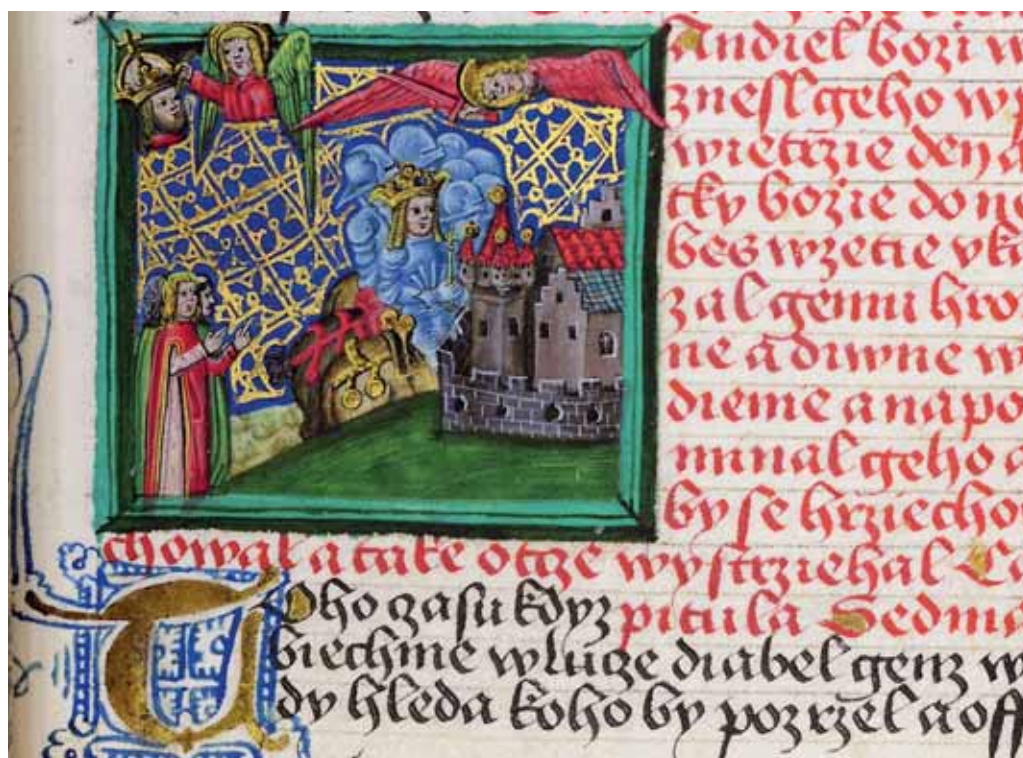 Andiel bozi w
znesl geho wp
wietrzie den a
tky bozie do ne
bes wzetie vka
zal gemu hro
ne a diwne w
dieme a napo
minal geho a
by se hrziecho
chowal a take otze wystrziehal Ca
pitula Sedme
Toho czasu kdyz
biechme w luoze diabel genz w
dy hleda koho by pozrzel a off